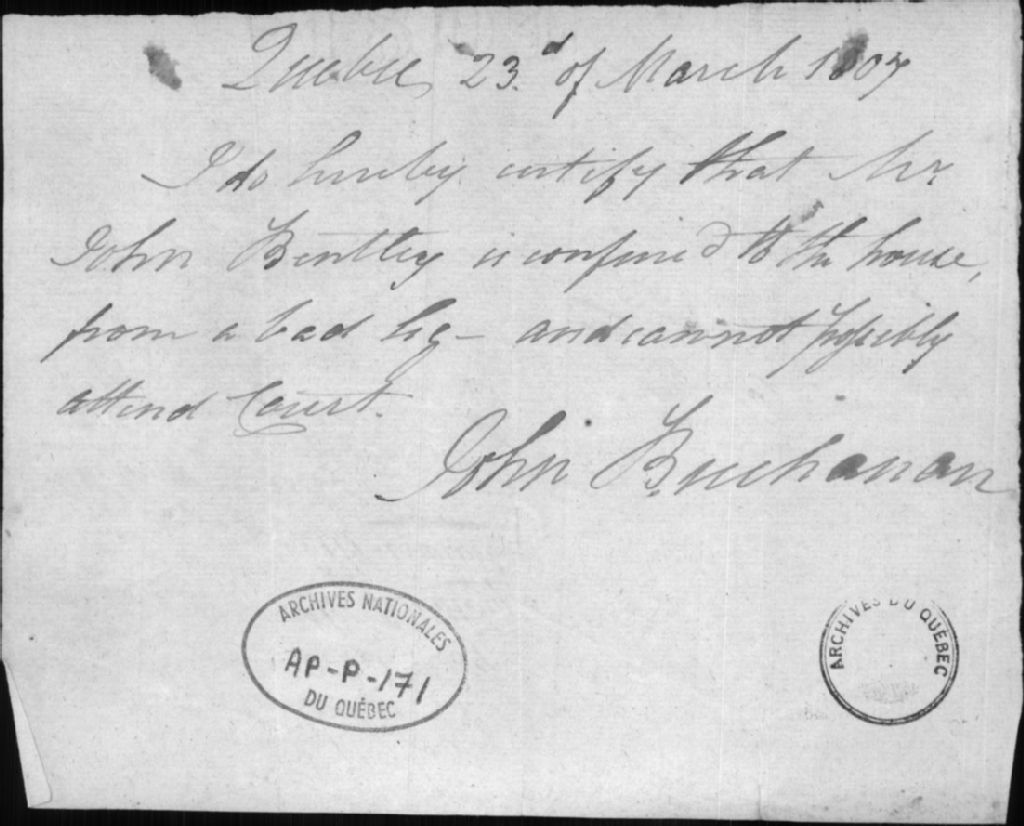 Quebec, 23.d of March 1807
I do hereby certify that Mr
John Bentley is confined to the house,
from a bad leg - and cannot possibly
attend Court.
John Buchanan
ARCHIVES NATIONALES
AP-P-171
DU QUÉBEC
ARCHIVES DU QUEBEC